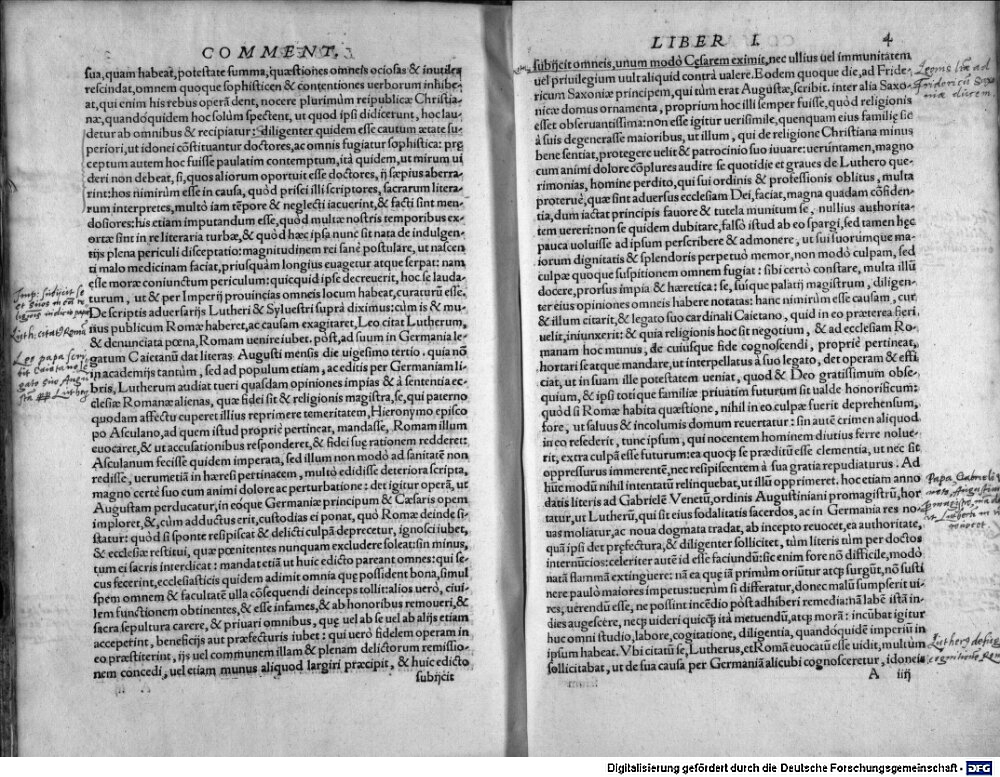 COMMENT.
sua, quam habeat, potestate summa, quæstiones omneis ociosas & inutiles
rescindat, omnem quoque sophisticen & contentiones uerborum inhibe
at, qui enim his rebus operā dent, nocere plurimùm reipublicæ Christia-
næ, quandoquidem hoc solùm spectent, ut quod ipsi didicerunt, hoc lau
detur ab omnibus & recipiatur: diligenter quidem esse cautum ætate su-
periori, ut idonei cōstituantur doctores, ac omnis fugiatur sophistica: prę
ceptum autem hoc fuisse paulatim contemptum, itā quidem, ut mirum ui
deri non debeat, si, quos aliorum oportuit esse doctores, ij sæpius aberra-
rint: hos nimirùm esse in causa, quòd prisci illi scriptores, sacrarum litera-
rum interpretes, multò iam tēpore & neglecti iacuerint, & facti sint men-
dosiores: his etiam imputandum esse, quòd multæ nostris temporibus ex-
ortæ sint in re literaria turbæ, & quòd hæc ipsa nunc sit nata de indulgen-
tijs plena periculi disceptatio: magnitudinem rei sanè postulare, ut nascen
ti malo medicinam faciat, priusquàm longius euagetur atque serpat: nam
esse moræ coniunctum periculum: quicquid ipse decreuerit, hoc se lauda-
turum, ut & per Imperij prouincias omneis locum habeat, curaturū esse.
De scriptis aduersarijs Lutheri & Syluestri suprà diximus: cùm is & mu-
nus publicum Romæ haberet, ac causam exagitaret, Leo citat Lutherum,
& denunciata pœna, Romam uenire iubet. pòst, ad suum in Germania le-
gatum Caietanū dat literas Augusti mensis die uigesimo tertio. quia nō
in academijs tantùm, sed ad populum etiam, ac editis per Germaniam li-
bris, Lutherum audiat tueri quasdam opiniones impias & à sententia ec-
clesiæ Romanæ alienas, quæ fidei sit & religionis magistra, se, qui paterno
quodam affectu cuperet illius reprimere temeritatem, Hieronymo episco
po Asculano, ad quem istud propriè pertineat, mandasse, Romam illum
euocaret, & ut accusationibus responderet, & fidei suę rationem redderet:
Asculanum fecisse quidem imperata, sed illum non modò ad sanitatē non
redisse, uerumetiā in hæresi pertinacem, multò edidisse deteriora scripta,
magno certè suo cum animi dolore ac perturbatione: det igitur operā, ut
Augustam perducatur, in eóque Germaniæ principum & Cæsaris opem
imploret, &, cùm adductus erit, custodias ei ponat, quò Romæ deinde si-
statur: quòd si spontè resipiscat & delicti culpā deprecetur, ignosci iubet,
& ecclesiæ restitui, quæ pœnitentes nunquam excludere soleat: sin minus,
tum ei sacris interdicit: mandat etiā ut huic edicto pareant omnes: qui se-
cus fecerint, ecclesiasticis quidem adimit omnia quę possident bona, simul
spem omnem & facultatē ulla cōsequendi deinceps tollit: alios uerò, ciui-
lem functionem obtinentes, & esse infames, & ab honoribus remoueri, &
sacra sepultura carere, & priuari omnibus, quę uel ab se uel ab alijs etiam
acceperint, beneficijs aut præfecturis iubet: qui uerò fidelem operam in
eo præstiterint, ijs uel communem illam & plenam delictorum remissio-
nem concedi, uel etiam munus aliquod largiri præcipit, & huic edicto
subijcit
Luth: citatꝰ Romā
LIBER I. 4
subijcit omneis, unum modò Cęsarem eximit, nec ullius uel immunitatem
uel priuilegium uult aliquid contrà ualere. Eodem quoque die, ad Fride-
ricum Saxoniæ principem, qui tùm erat Augustæ, scribit. inter alia Saxo-
nicæ domus ornamenta, proprium hoc illi semper fuisse, quòd religionis
esset obseruantissima: non esse igitur uerisimile, quenquam eius familię sic
à suis degenerasse maioribus, ut illum, qui de religione Christiana minus
bene sentiat, protegere uelit & patrocinio suo iuuare: ueruntamen, magno
cum animi dolore cōplures audire se quotidie et graues de Luthero que-
rimonias, homine perdito, qui sui ordinis & professionis oblitus, multa
proteruè, quæ sint aduersus ecclesiam Dei, faciat, magna quadam cōfiden-
tia, dum iactat principis fauore & tutela munitum se, nullius authorita-
tem uereri: non se quidem dubitare, falsò istud ab eo spargi, sed tamen hęc
pauca uoluisse ad ipsum perscribere & admonere, ut sui suorumque ma-
iorum dignitatis & splendoris perpetuò memor, non modò culpam, sed
culpæ quoque suspitionem omnem fugiat: sibi certò constare, multa illū
docere, prorsus impia & hæretica: se, suisque palatij magistrum, diligen-
ter eius opiniones omneis habere notatas: hanc nimirùm esse causam, cur
& illum citarit, & legato suo cardinali Caietano, quid in eo præterea fieri
uelit, iniunxerit: & quia religionis hoc sit negotium, & ad ecclesiam Ro-
manam hoc munus, de cuiusque fide cognoscendi, propriè pertineat,
hortari se atque mandare, ut interpellatus à suo legato, det operam & effi
ciat, ut in suam ille potestatem ueniat, quod & Deo gratissimum obse-
quium, & ipsi toti que familiæ priuatim futurum sit ualde honorificum:
quòd si Romæ habita quæstione, nihil in eo culpæ fuerit deprehensum,
fore, ut saluus & incolumis domum reuertatur: sin autē crimen aliquod
in eo resederit, tunc ipsum, qui nocentem hominem diutius ferre nolue-
rit, extra culpā esse futurum: ea quoqꝫ se præditū esse clementia, ut nec sit
oppressurus immerentē, nec resipiscentem à sua gratia repudiaturus. Ad
hūc modū nihil intentatū relinquebat, ut illū opprimeret. hoc etiam anno
datis literis ad Gabrielē Venetū, ordinis Augustiniani promagistrū, hor
tatur, ut Lutherū, qui sit eius sodalitatis sacerdos, ac in Germania res no-
uas moliatur, ac noua dogmata tradat, ab incepto reuocet, ea authoritate,
quā ipsi det prefectura, & diligenter sollicitet, tùm literis tùm per doctos
internūcios: celeriter autē id esse faciundū: sic enim fore nō difficile, modò
natā flammā extinguere: nā ea quę iā primùm oriūtur atqꝫ surgūt, nō susti
nere paulò maiores impetus: uerùm si differatur, donec malū sumpserit ui-
res, uerendū esse, ne possint incēdio pòst adhiberi remedia: nā labē istā in-
dies augescere, necqꝫ uideri quicqꝫ ità metuendū, atqꝫ morā: incūbat igitur
huc omni studio, labore, cogitatione, diligentia, quandoquidē imperiū in
ipsum habeat. Vbi citatū se, Lutherus, et Romā euocatū esse uidit, multùm
sollicitabat, ut de sua causa per Germaniā alicubi cognosceretur, idoneis
A iiij
Digitalisierung gefördert durch die Deutsche Forschungsgemeinschaft - DFG